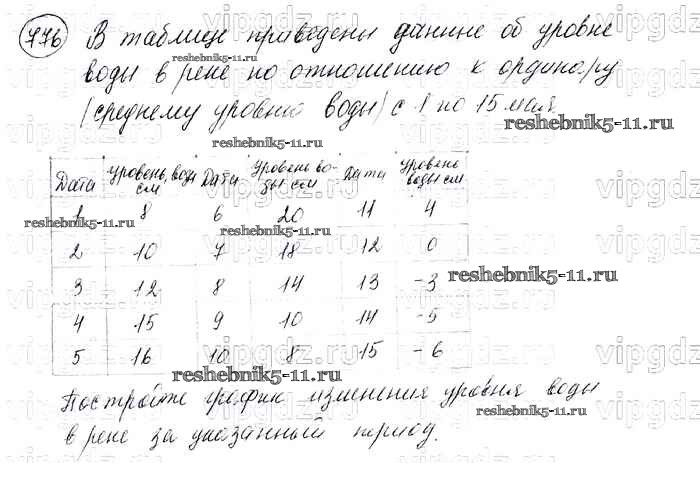 776 В таблице приведены данные об уровне
воды в реке по отношению к ординару
(среднему уровню воды) с 1 по 15 мая.
reshebnik5-11.ru
Дата уровень воды см Дата Уровень воды см Дата Уровень воды см
1 8 6 20 11 4
2 10 7 18 12 0
3 12 8 14 13 -3
4 15 9 10 14 -5
5 16 10 8 15 -6
reshebnik5-11.ru
Постройте график изменения уровня воды
в реке за указанный период.
vipgdz.ru